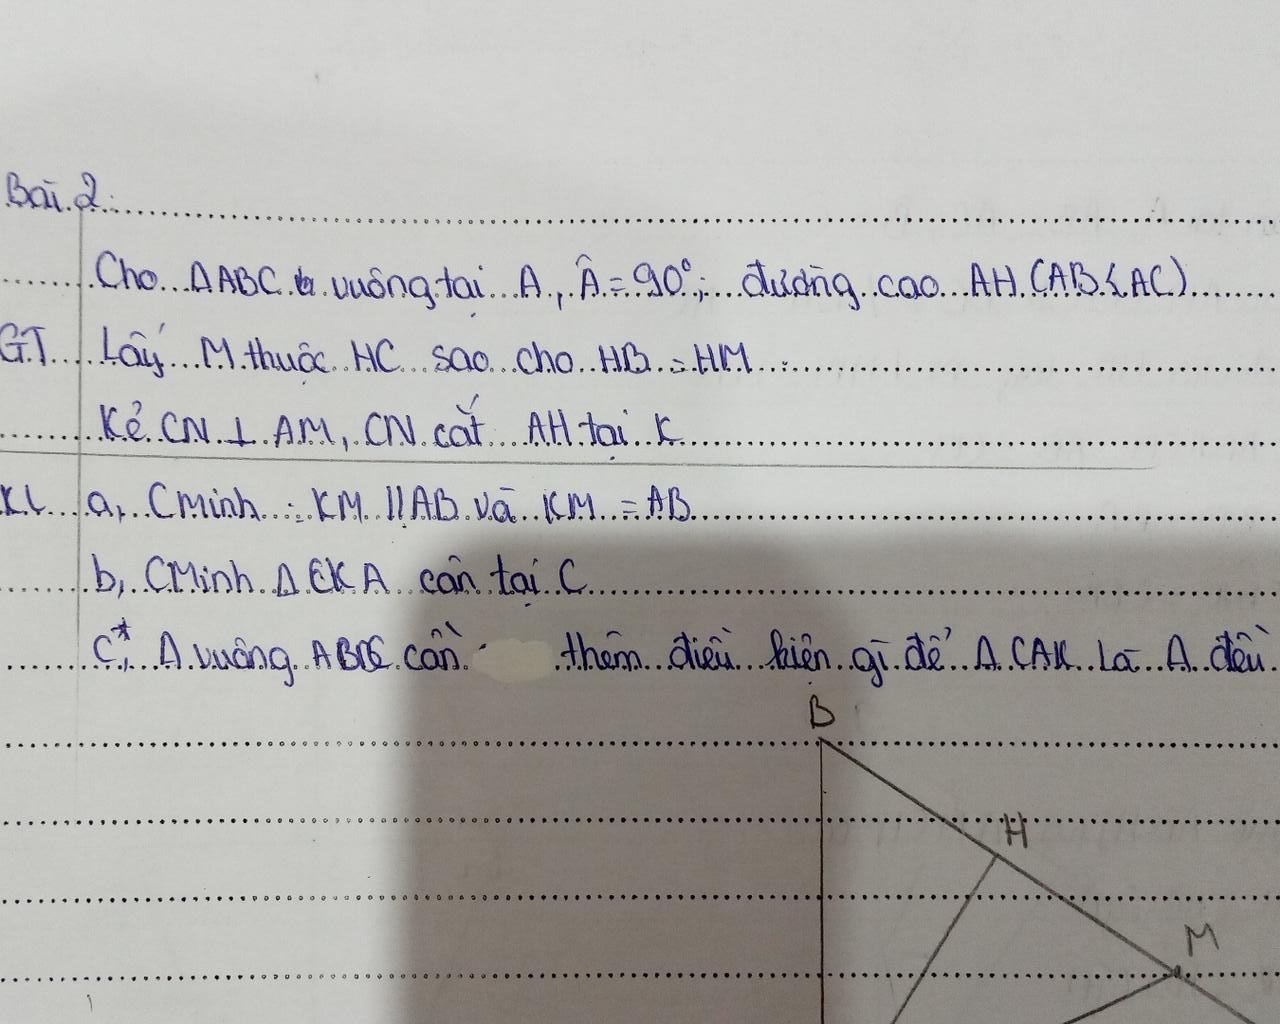 Bài 2:
Cho ΔABC vuông tại A, Â = 90°; đường cao AH (AB < AC)
GT Lấy M thuộc HC sao cho HB = HM.
Kẻ CN ⊥ AM, CN cắt AH tại K
KL a, CMinh : KM // AB và KM = AB
b, CMinh Δ CKA cân tại C
C*, Δ vuông ABC cần thêm điều kiện gì để Δ CAK là Δ đều
B
H
M